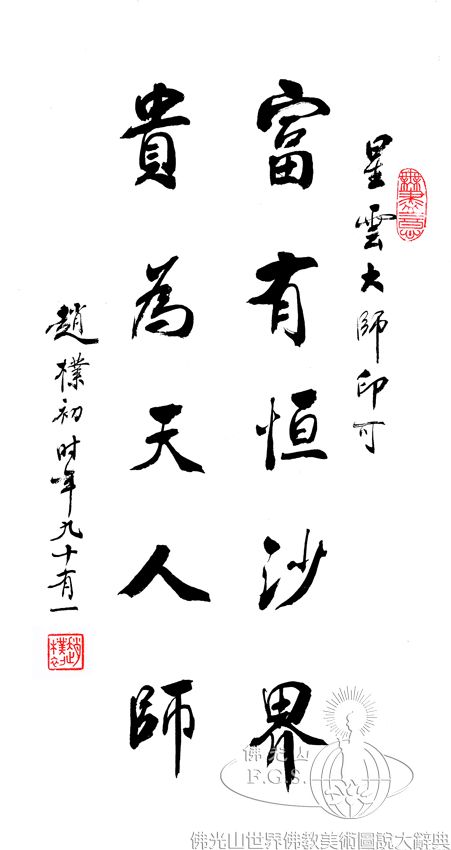 星雲大師印可
富有恒沙界
貴為天人師
趙樸初时年九十有一
佛光山
F.G.S.
佛光山世界佛教美術圖說大辭典